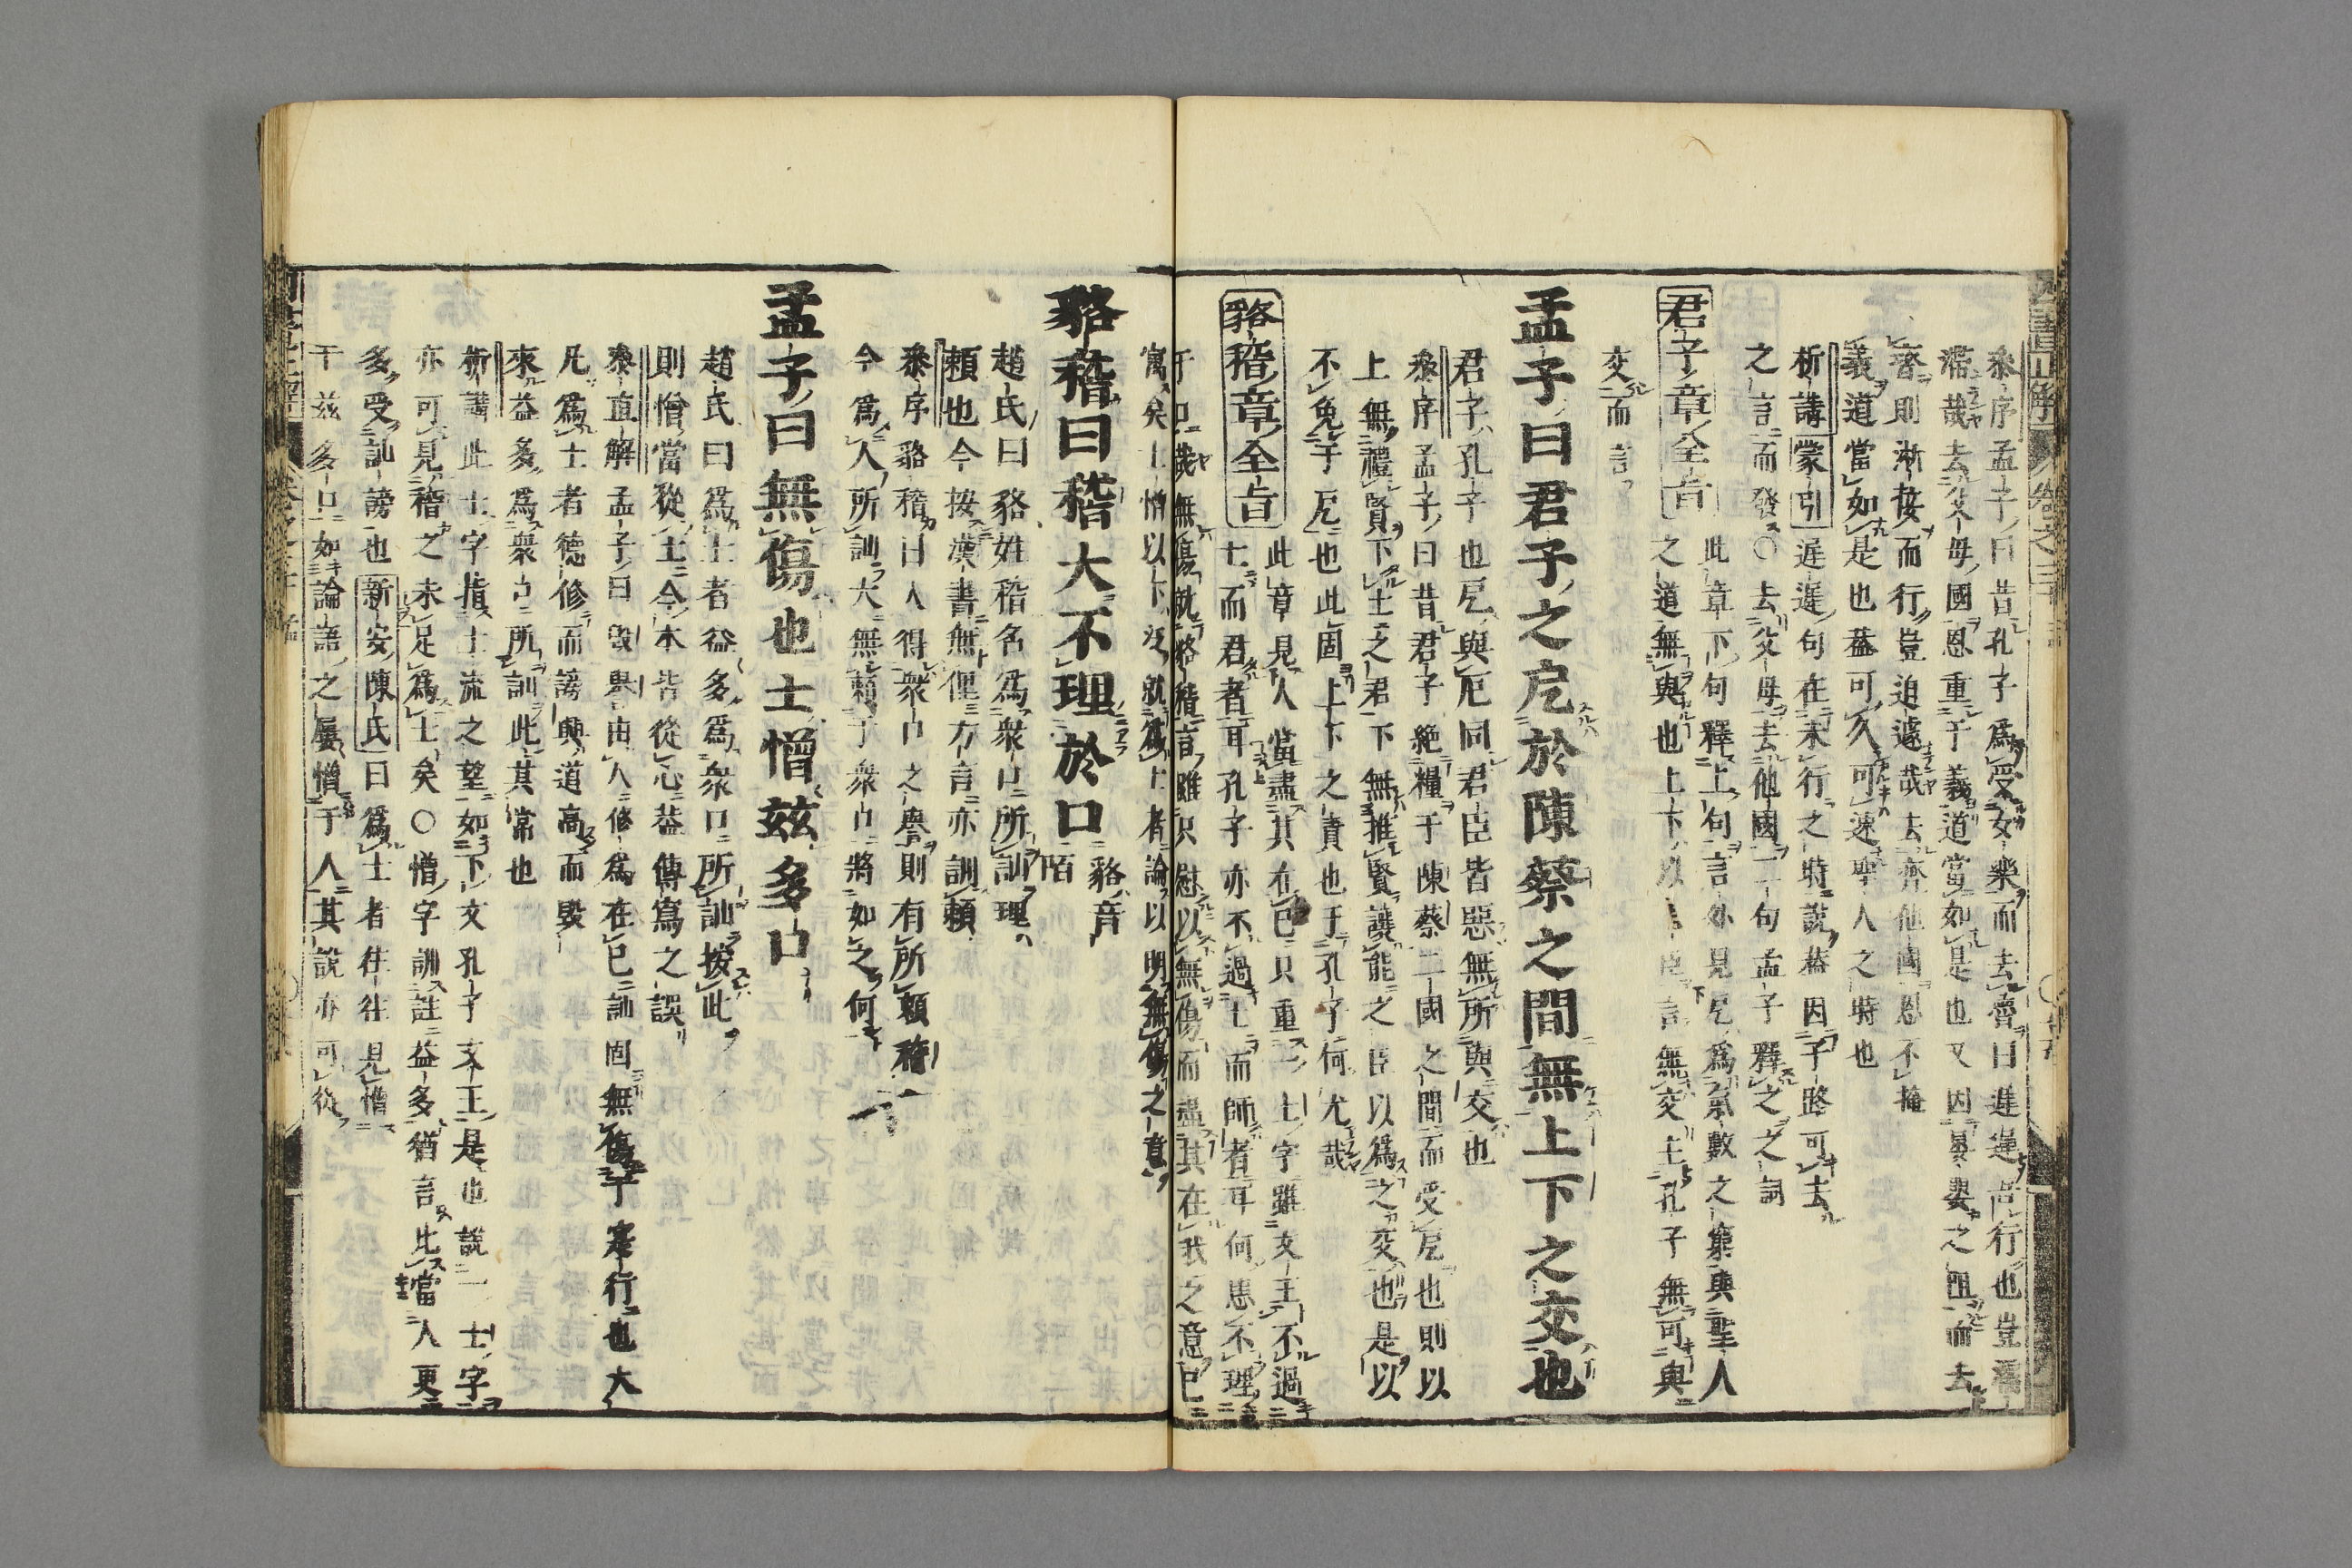 參序孟子曰昔孔子為受女樂而去魯曰遲遲吾行也豈濡
滯哉去父母國恩重于義道當如是也又因晏嬰之沮而去
齊則淅接而行豈迫遽哉去齊他國恩不掩
義道當如是也蓋可久可速聖人之時也
析講蒙引遲遲句在未行之時說蓋因子路可去
之言而發〇去父母去他國二句孟子釋之之詞
君子章全旨此章下句釋上句言外見戹為氣數之窮與聖人
之道無與也上下以君臣言無交主孔子無可與
交而言
孟子曰君子之戹於陳蔡之間無上下之交也
君子孔子也戹與厄同君臣皆惡無所與交也
參序孟子曰昔君子絕糧于陳蔡二國之間而受戹也則以
上無禮賢下士之君下無推賢讓能之臣以為之交也是以
不免于戹也此固上下之責也于孔子何尤哉
貉稽章全旨此章見人當盡其在己只重一士字雖文王不過
士而君者耳孔子亦不過士而師者耳何患不理
于口哉無傷就貉稽言雖只慰以無傷而盡其在我之意已
寓矣士憎以下泛就為士者論以明無傷之意
貉稽曰稽大不理於口貉音陌
趙氏曰貉姓稽名為衆口所訕理
賴也今按漢書無俚方言亦訓賴
參序貉稽曰人得衆口之譽則有所賴稽
今為人所訕大無賴于衆口將如之何
孟子曰無傷也士憎茲多口
趙氏曰為士者益多為衆口所訕按此
則憎當從土今本皆從心蓋傳寫之誤
參直解孟子曰毀譽由人修為在己訕固無傷于寔行也大
凡為士者德修而謗興道高而毀
來益多為衆口所訕此其常也
析講此士字指士流之望如下文孔子文王是也說一士字
亦可見稽之未足為士矣〇憎字訓註益多猶言比當人更
多受訕謗也新安陳氏曰為士者往往見憎
于茲多口如論語之屢憎于人其說亦可從